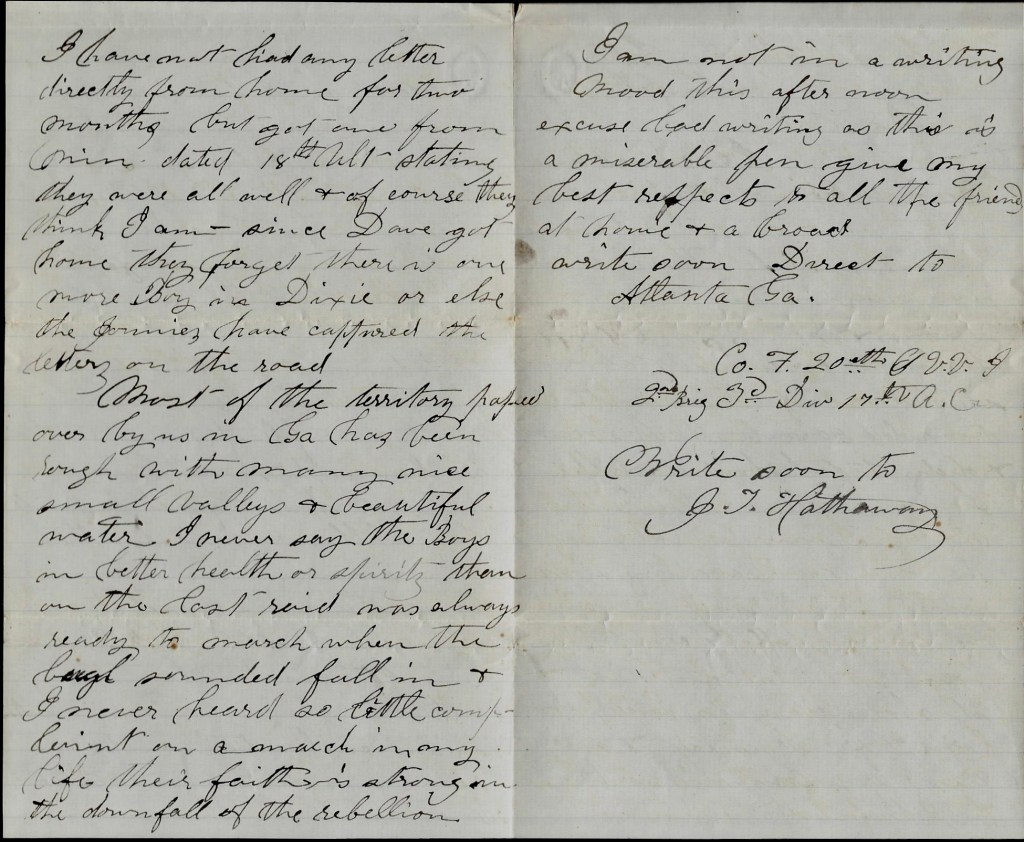 I have not had any letter
directly from home for two
months but got one from
Min. dated 18th Ult stating
they were all well & of course they
think I am — since Dave got
home they forget there is one
more Boy in Dixie or else
the Jonnies have captured the
letters on the road
Most of the territory passed
over by us in Ga has been
rough with many nice
small valleys & beautiful
water I never say the Boys
in better health or spirits than
on the last raid was always
ready to march when the
bugl sounded fall in &
I never heard so little comp-
laint on a march in my
life their faith is strong in
the downfall of the rebellion
I am not in a writing
Mood this after noon
excuse bad writing as this is
a miserable pen give my
best respects to all the friend
at home & a broad
write soon Direct to
Atlanta Ga.
Co. F. 20th O V. V. I
2nd Brig 3d Div 17th A. C
Write soon to
J. T. Hathaway